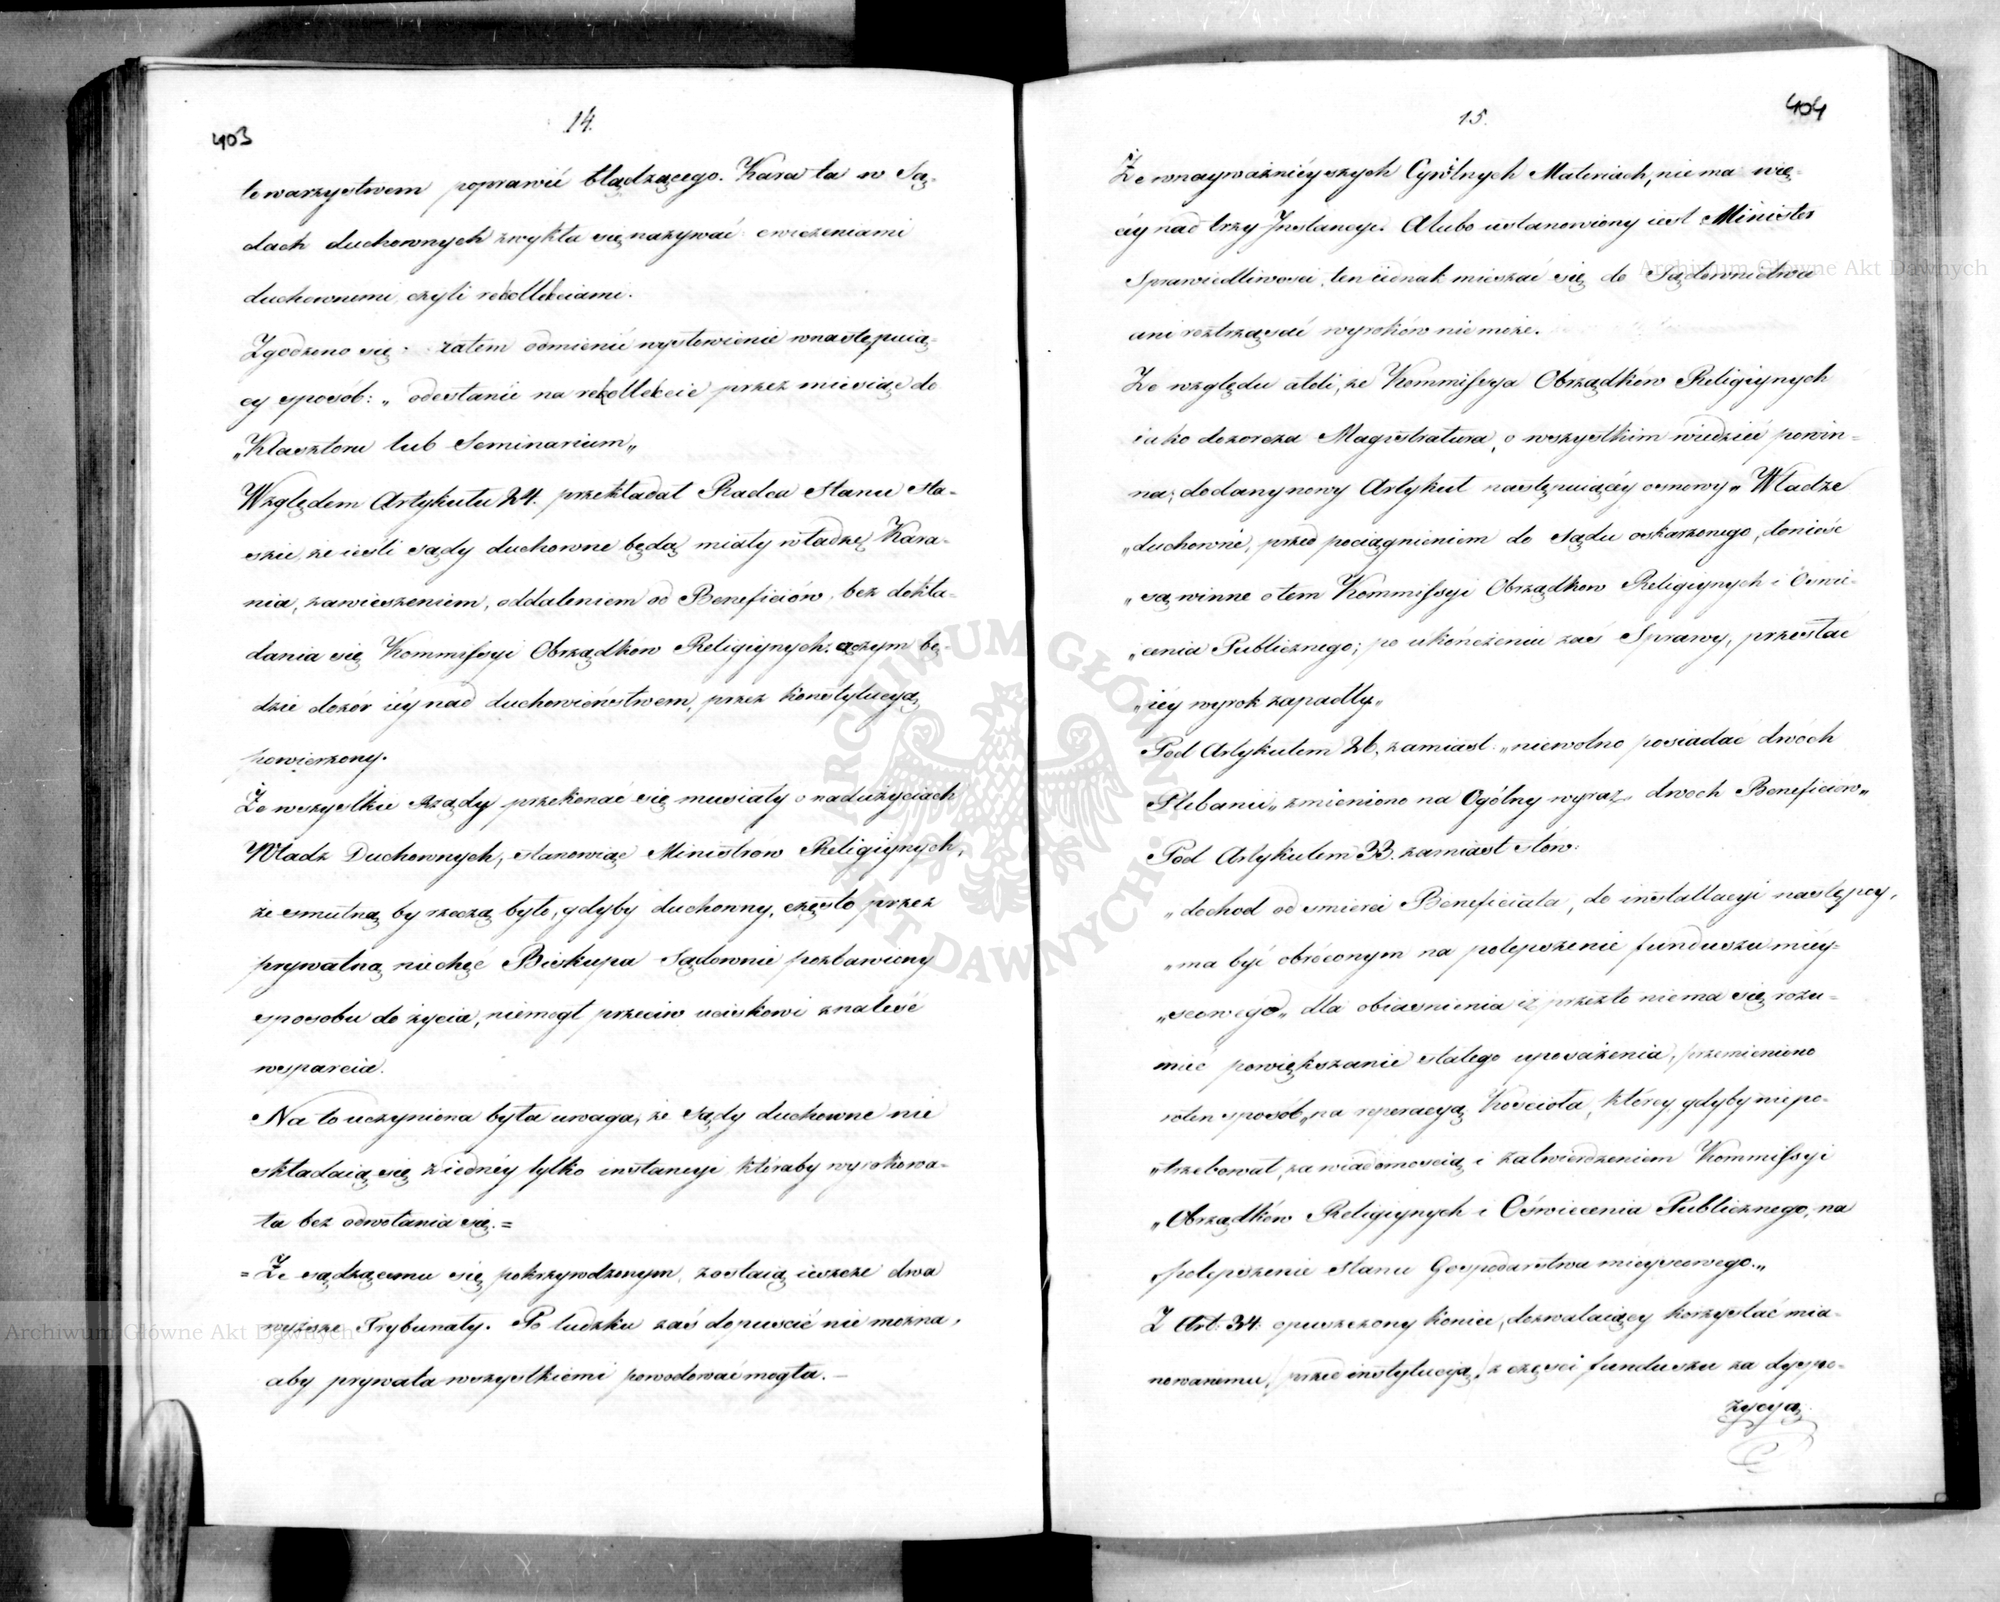 403
14.
towarzystwem poprawić błądzącego. Kara ta w Są-
dach duchownych zwykła się nazywać ćwiczeniami
duchownemi czyli rekollekciami.
Zgodzono się zatem odmienić wysłowienie w następuią-
cy sposób: „odesłanie na rekollekcie przez miesiąc do
„Klasztoru lub Seminarium„
Względem Artykułu 24. przekładał Radca Stanu Sta-
szic, że ieśli sądy duchowne będą miały władzę Kara-
nia, zawieszeniem, oddaleniem od Beneficiów, bez dokła-
dania się Kommissyi Obrządków Religiynych, czym bę-
dzie dozór iéy nad duchowieństwem, przez konstytucyą
powierzony.
Że wszystkie Rządy przekonać się musiały o nadużyciach
Władz Duchownych, stanowiąc Ministrów Religiynych,
że smutną by rzeczą było, gdyby duchowny, często przez
prywatną niechęć Biskupa Sądownie pozbawiony
sposobu do życia, niemógł przeciw uciskowi znaleść
wsparcia.
Na to uczyniona była uwaga, że Sądy duchowne nie
składaią się z iednéy tylko instancyi któraby wyrokowa-
ła bez odwołania się. =
= Że sądzącemu się pokrzywdzonym, zostaią ieszcze dwa
wyższe Trybunały. Po ludzku zaś dopuścić nie można,
aby prywata wszystkiemi powodować mogła. —
404
15.
Że w nayważniéyszych Cywilnych Materiach, nie ma wię-
céy nad trzy Instancye. A lubo ustanowiony iest Minister
Sprawiedliwości, ten iednak mieszać się do Sądownictwa
ani roztrząsać wyroków nie może.
Ze względu atoli, że Kommissya Obrządków Religiynych
iako dozorcza Magistratura, o wszystkim wiedzieć powin-
na; dodany nowy Artykuł następuiącéy osnowy „Władze
„duchowne, przed pociągnieniem do Sądu oskarżonego, donieść
„są winne o tem Kommissyi Obrządków Religiynych i Oświe-
„cenia Publicznego; po ukończeniu zaś Sprawy, przesłać
„iéy wyrok zapadły„
Pod Artykułem 26, zamiast: „niewolno posiadać dwóch
Plebanii„ zmieniono na Ogólny wyraz „dwóch Beneficiów„
Pod Artykułem 33. zamiast słów:
„dochod od smierci Beneficiata, do installacyi następcy,
„ma być obróconym na polepszenie funduszu miéy-
„scowego„ dla obiasnienia iż przez to niema się rozu-
mieć powiększanie stałego uposażenia, przemieniono
w ten sposób „na reperacyą Kościoła, którey gdyby nie po-
„trzebował, za wiadomością i zatwierdzeniem Kommissyi
„Obrządków Religiynych i Oświecenia Publicznego, na
„polepszenie Stanu Gospodarstwa miéyscowego.„
Z Art: 34. opuszczony koniec, dozwalaiący korzystać mia-
nowanemu, /przed instytucyą,/ z części funduszu za dyspo-
zycyą